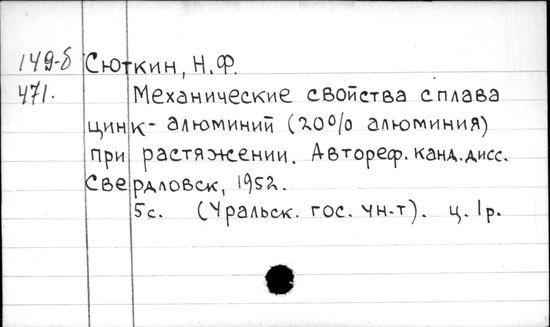 149-б Сюткин, Н.Ф.
471. Механические свойства сплава
цинк-алюминий (20% алюминия)
при растяжении. Автореф. канд. дисс.
Свердловск, 1952.
5 с. (Уральск. гос. ун-т). ц. 1 р.